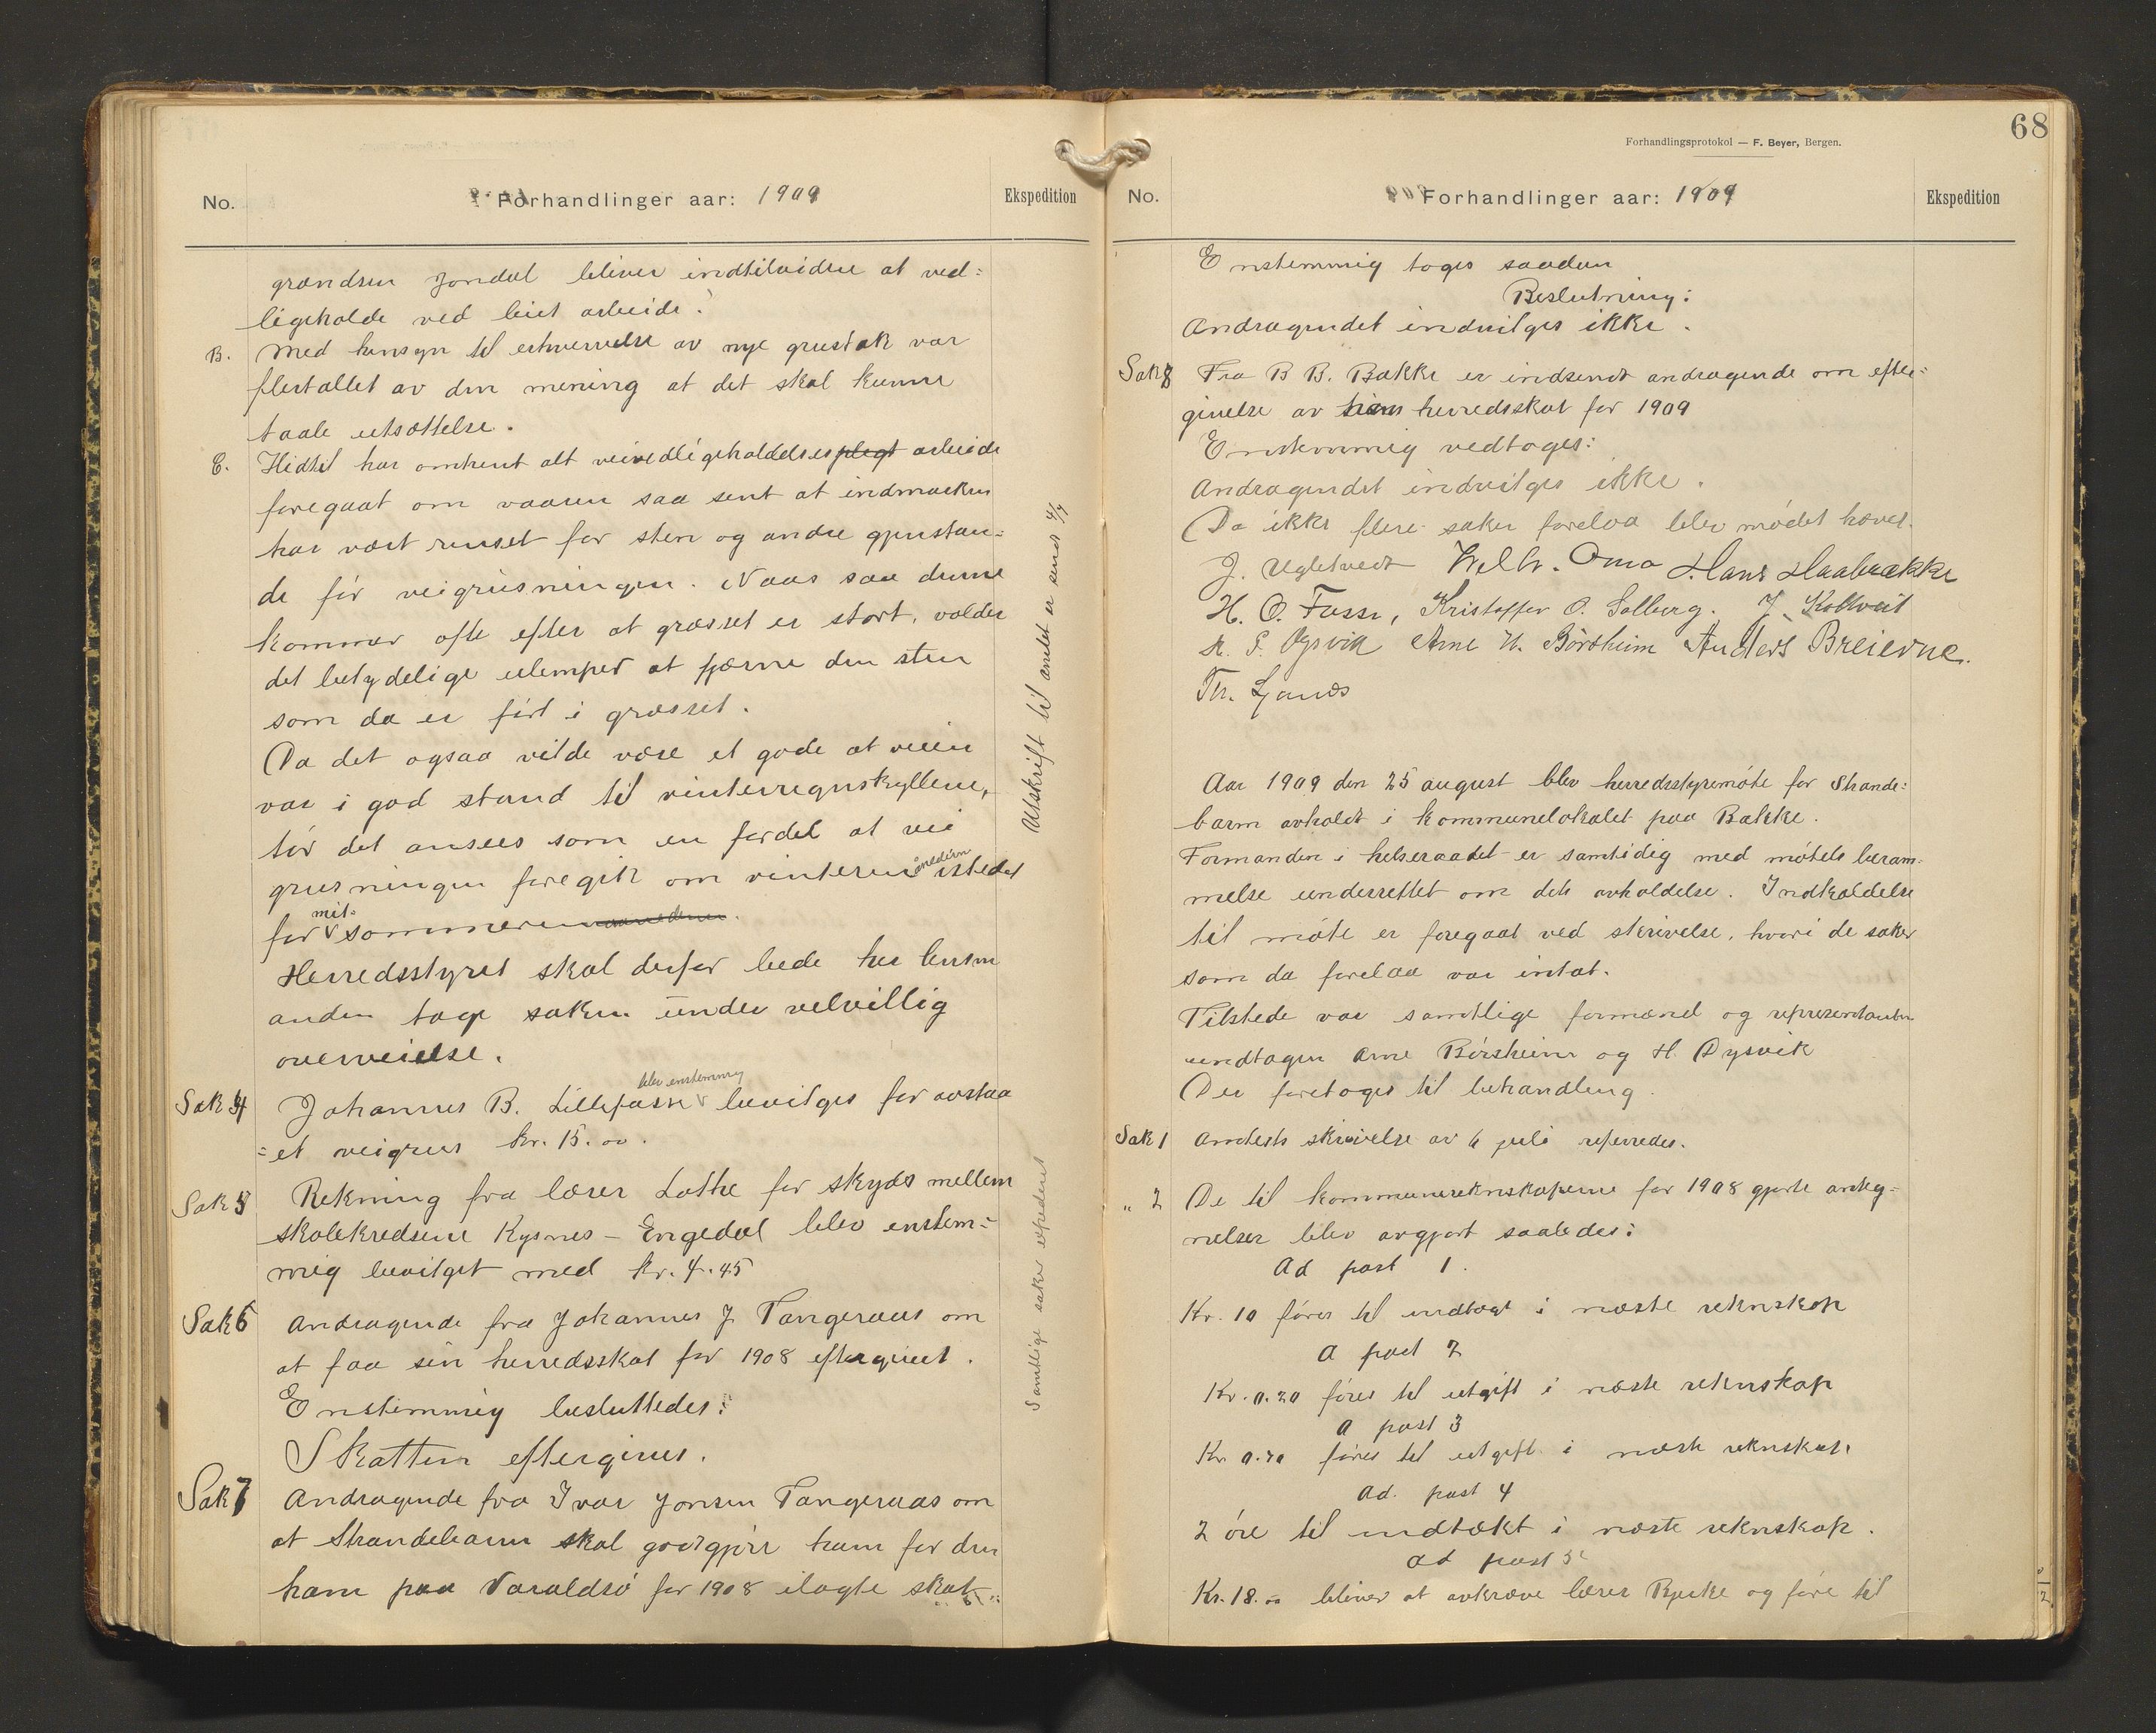 No. Forhandlinger aar: 1909 Ekspedition
grændsen Jondal bliver indtilvidere at ved=
ligeholde ved leiet arbeide.
B. Med hensyn til erhvervelse av nye grustak var
flertallet av den mening at det skal kunne
taale utsættelse.
E. Hidtil har omtrent alt veivedligeholdelsesplegt arbeide
foregaat om vaaren saa sent at indmarken
har vært renset for sten og andre gjenstan=
de før veigrusningen. Naar saa denne
kommer ofte efter at græsset er stort, volder
det betydelige ulemper at fjærne den sten
som da er ført i græsset.
Da det ogsaa vilde være et gode at veien
var i god stand til vinterregnskyllene,
tør det ansees som en fordel at vei
grusningen foregik om vinteren istedet
for mit- sommeren
Herredsstyret skal derfor bede hr lensm
anden tage saken under velvillig
overveielse.
Sak 4 Johannes B. Lillefosse blev enstemmig bevilges for avstaa
=et veigrus kr. 15.00.
Sak 5 Rekning fra lærer Lothe for skyds mellem
skolekredsene Kysnes - Engedal blev enstem=
mig bevilget med kr. 4.45
Sak 6 Andragende fra Johannes J. Tangeraas om
at faa sin herredsskat for 1908 eftergivet.
Enstemmig besluttedes:
Skatten eftergives.
Sak 7 Andragende fra Ivar Jonsen Tangeraas om
at Strandebarm skal godtgjøre ham for den
ham paa Varaldsø for 1908 ilagte skat.
Utskrift til amtet er sendt 4/7
Samtlige saker expederet
68
Forhandlingsprotokol — F. Beyer, Bergen.
No. Forhandlinger aar: 1909 Ekspedition
Enstemmig toges saadan
Beslutning:
Andragendet indvilges ikke.
Sak 8 Fra B B. Bakke er indsendt andragende om efter=
givelse av herredsskat for 1909
Enstemmig vedtoges:
Andragendet indvilges ikke.
Da ikke flere saker forelaa blev mødet hævet.
J. Ugletvedt Oma Hans Haabrække
H. O. Fosse, Kristoffer O. Solberg. J. Koltveit
Dysvik Arne H. Børsheim Anders Breievne.
Th. Ljones
Aar 1909 den 25 august blev herredsstyremøte for Strande=
barm avholdt i kommunelokalet paa Bakke.
Formanden i helseraadet er samtidig med møtets beram=
melse underrettet om dets avholdelse. Indkaldelse
til møte er foregaat ved skrivelse, hvori de saker
som da forelaa var intat.
Tilstede var samtlige formænd og representanter
undtagen Arne Børsheim og H. Dysvik
Der foretoges til behandling.
Sak 1 Amtets skrivelse av 6 juli refereredes.
" 2 De til kommuneregnskaperne for 1908 gjorte anteg=
nelser blev avgjort saaledes:
Ad post 1.
Kr. 10 føres til indtægt i næste reknskap
A post 2
Kr. 0.20 føres til utgift i næste reknskap
A post 3
Kr. 0.20 føres til utgift i næste reknskap
Ad. post 4
2 øre til indtækt i næste reknskap.
Ad post 5
Kr. 18.00 bliver at avkræve lærer og føre til